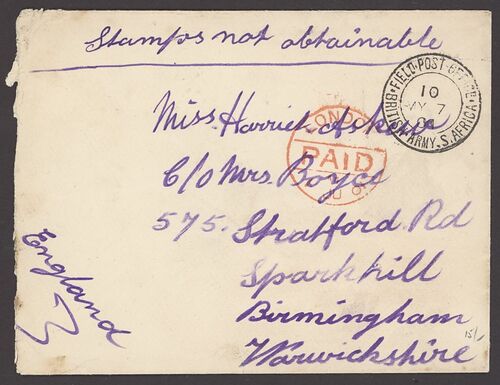 Stamps not obtainable
FIELD·POST·OFFICE·
BRITISH·ARMY·S.AFRICA
10
MY 7
LONDON
PAID
Miss Harriet Askew
C/o Mrs Boyce
575. Stratford Rd
Sparkhill
Birmingham
Warwickshire
England
15/-